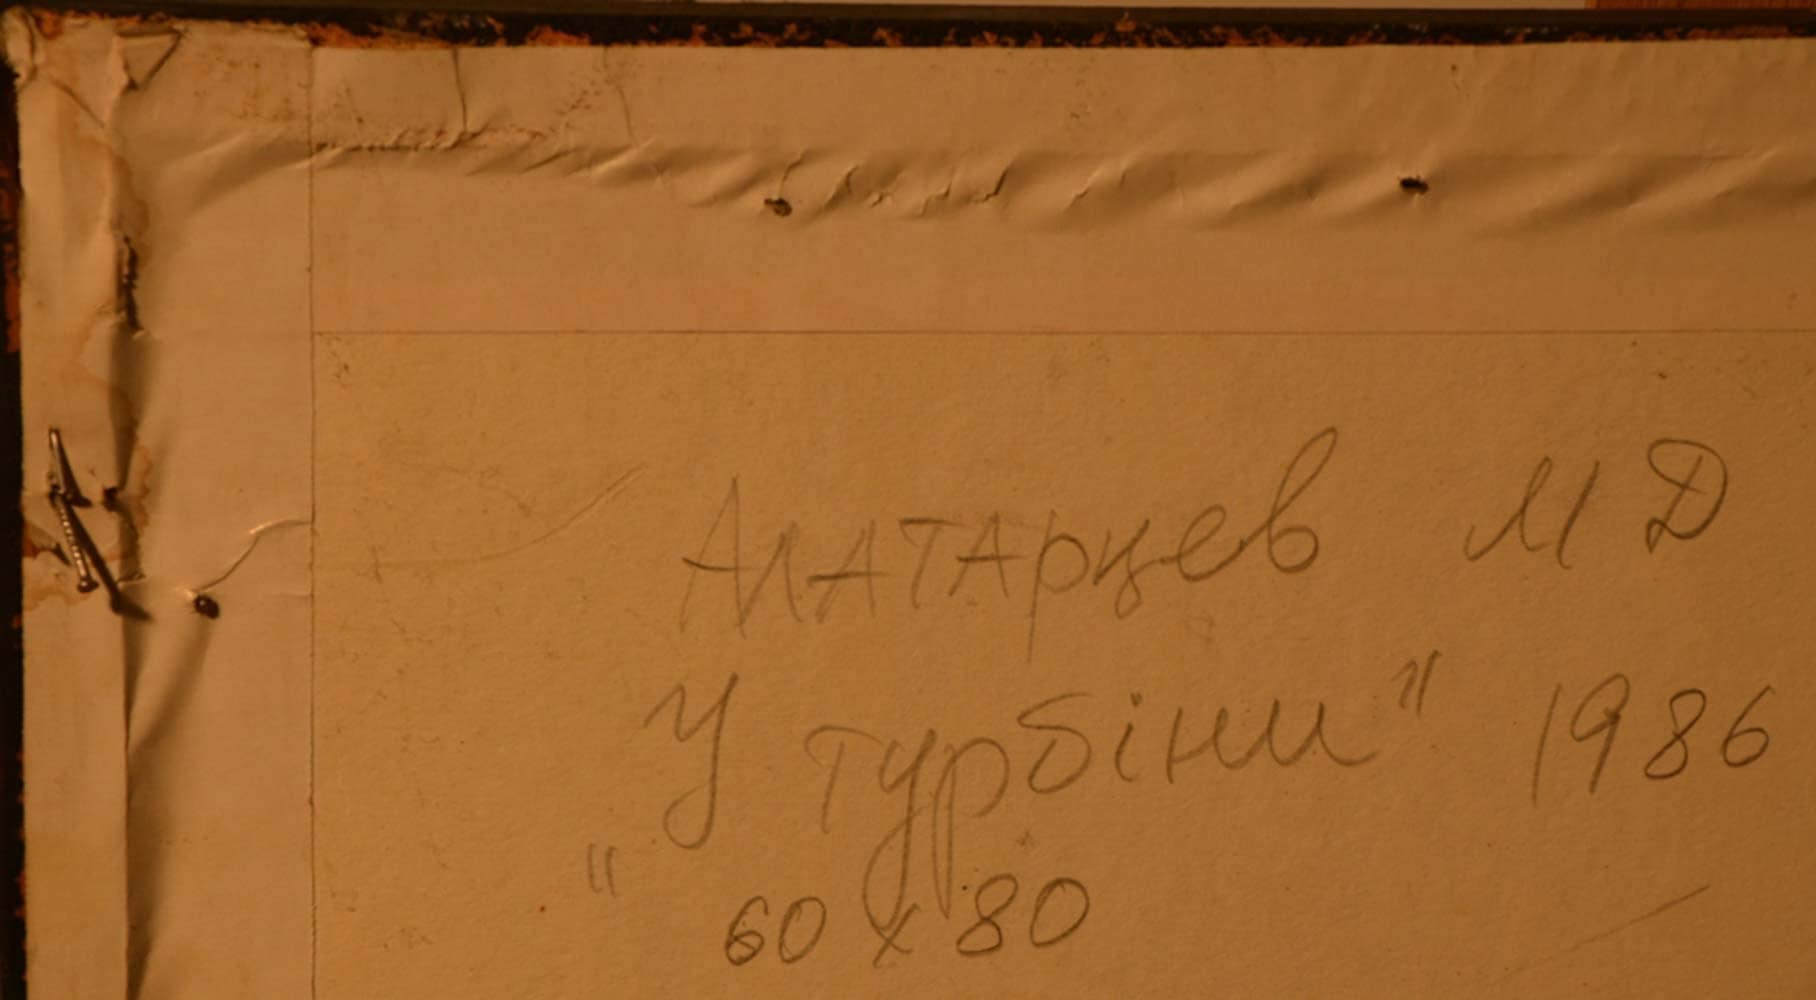 Алатарцев М Д
„У турбіни" 1986
60 х 80